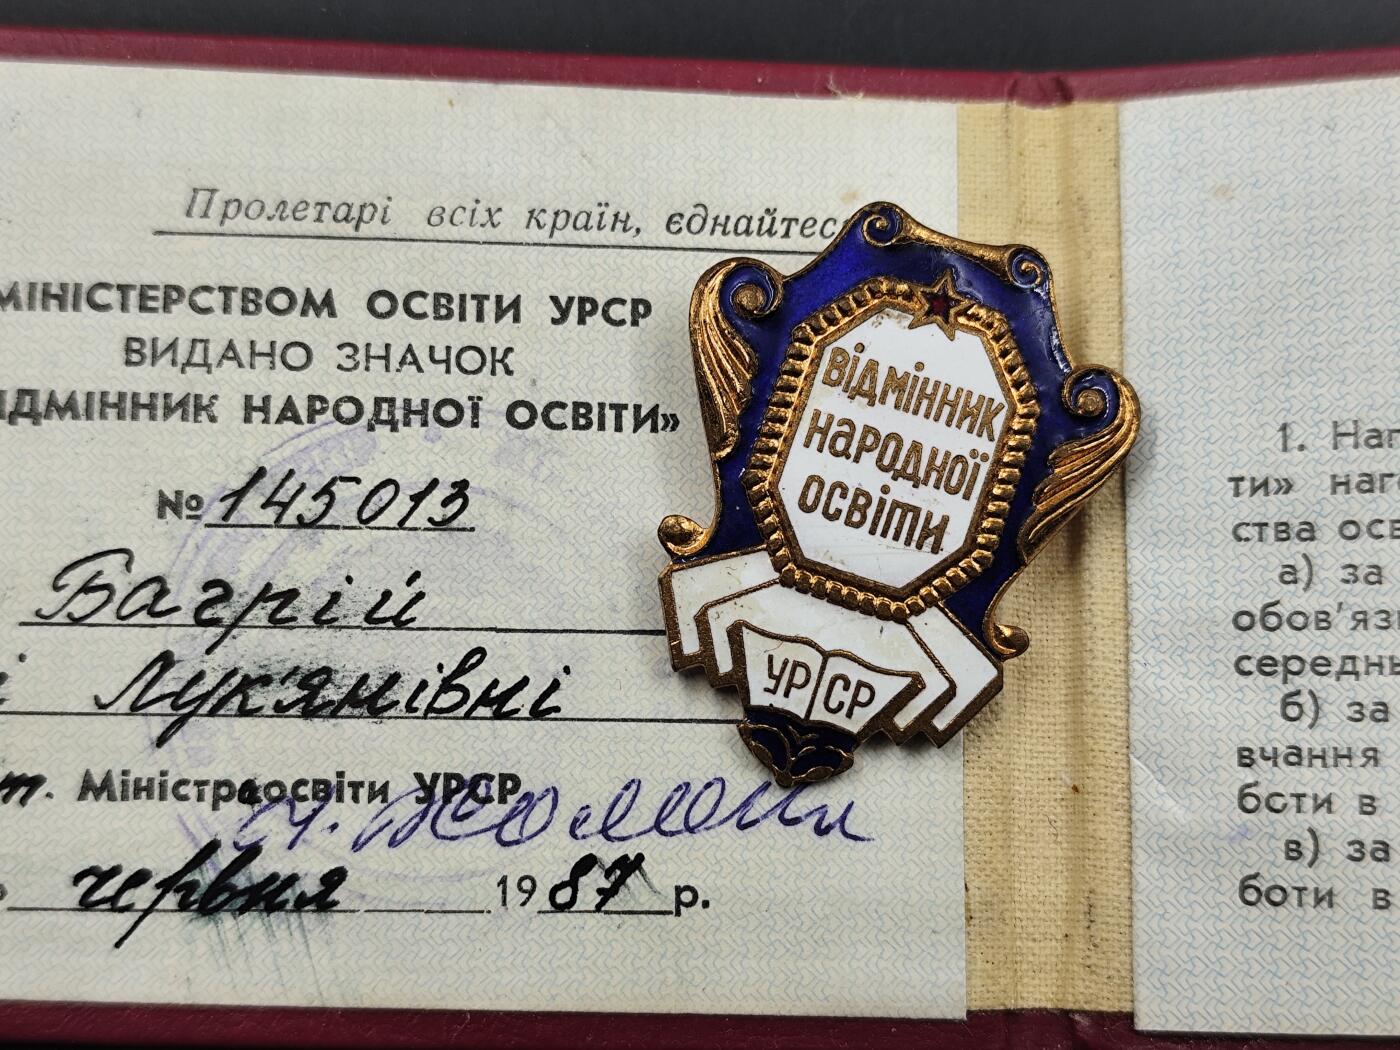 Пролетарі всіх країн, єднайтес
МІНІСТЕРСТВОМ ОСВІТИ УРСР
ВИДАНО ЗНАЧОК
ІДМІННИК НАРОДНОЇ ОСВІТИ»
№ 145013
Багрій
і Лук'янівні
т. Міністра освіти УРСР
червня 1987 р.
Відмінник
народної
освіти
УР СР
1. Наг
ти» наг
ства осв
а) за
обов'яз
середн
б) за
вчання
боти в
в) за
боти в